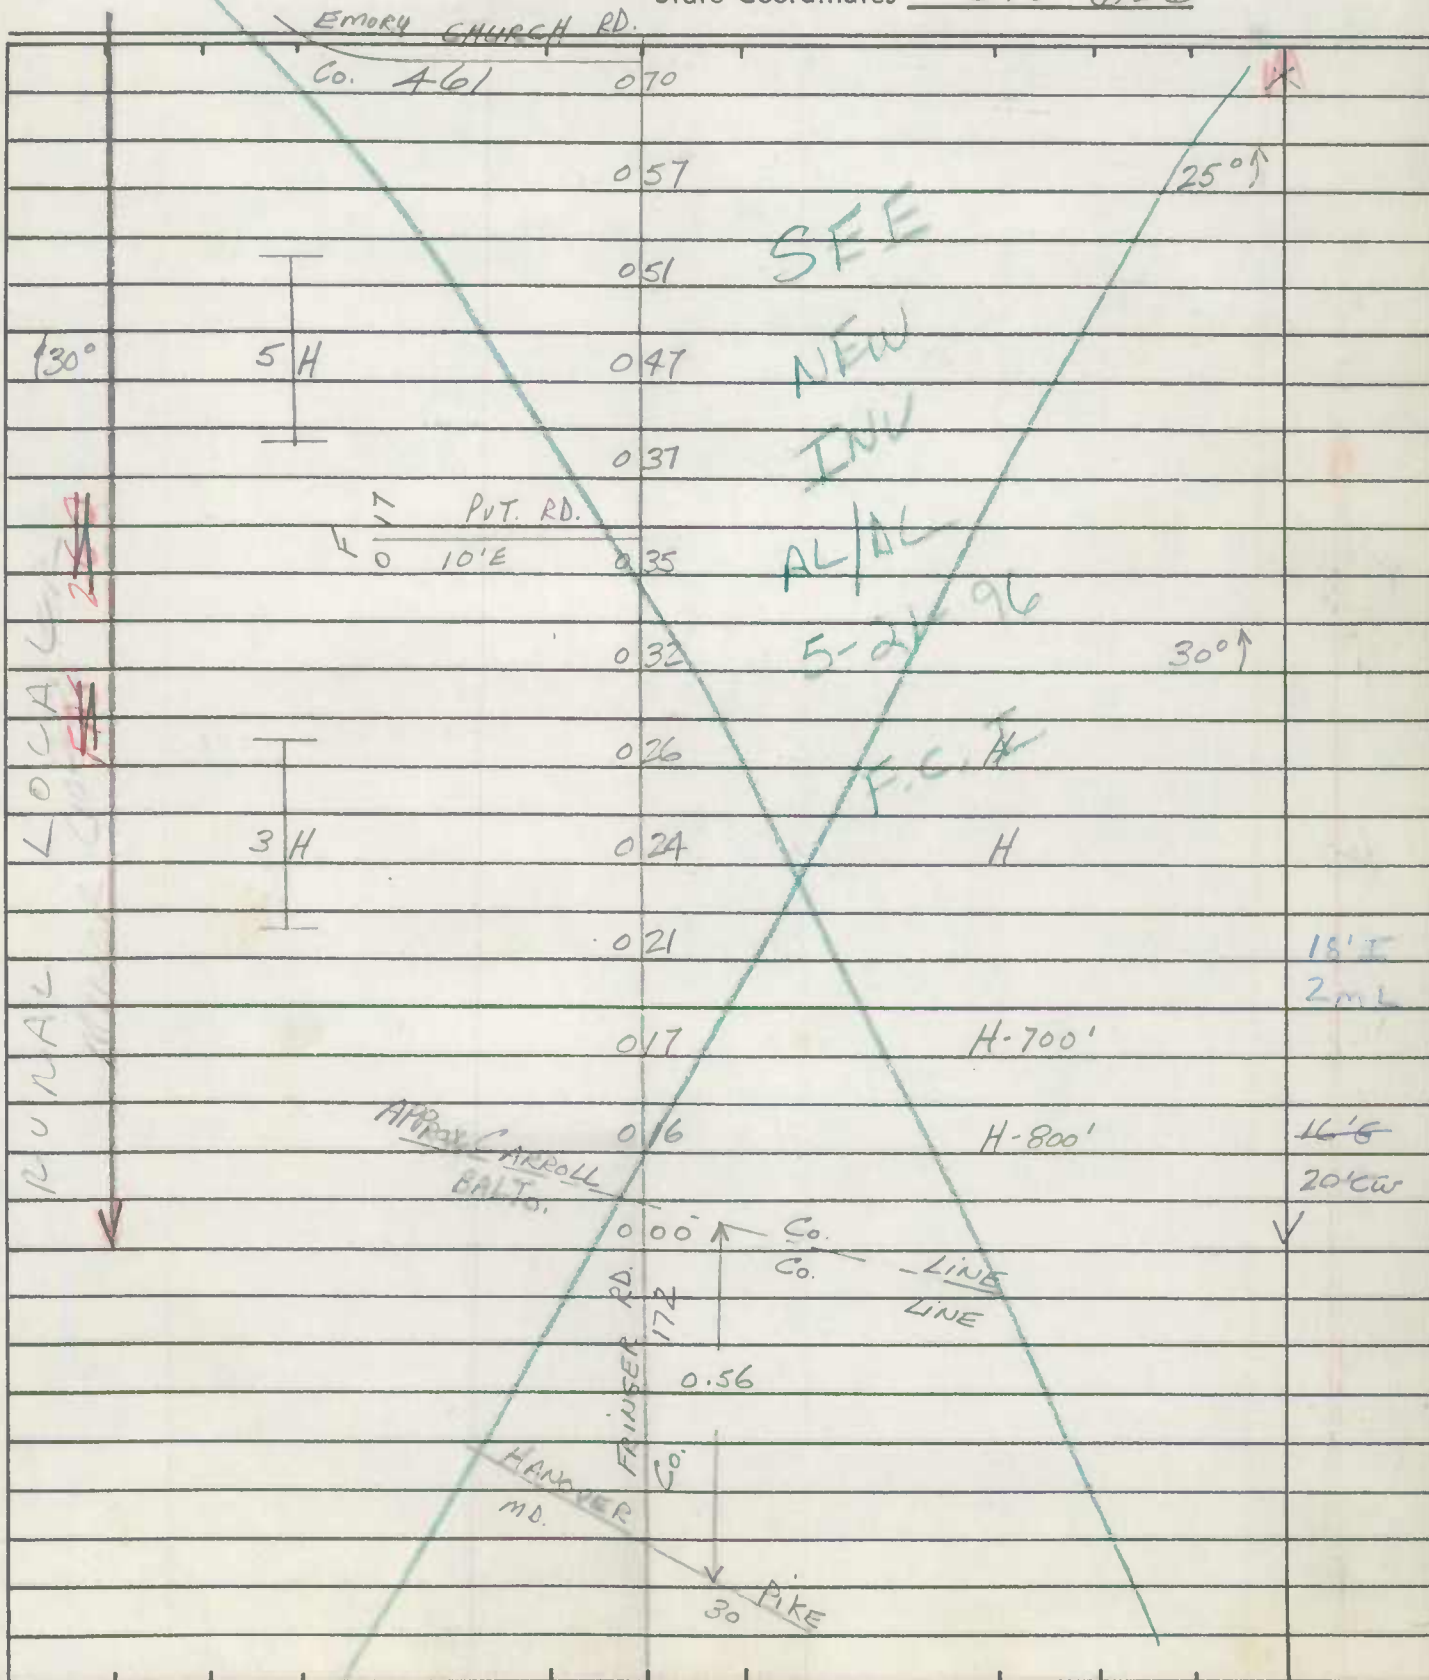 State Coordinates
EMORY CHURCH RD.
Co. 461
0 70
0 57
25°↑
SEE
0 51
NEW
30°
5 H
0 47
INV
0 37
0 17 PVT. RD.
10'E
AL/AL
0 35
5-2 96
0 32
30°↑
0 26
F.C.I
H
3 H
0 24
H
0 21
18' I
2 ML
0 17
H-700'
APPROX CARROLL
BALTO.
0 16
H-800'
16'G
20'CW
0 00
Co. LINE
Co. LINE
FRINGER RD.
Co. 172
0.56
HANOVER PIKE
MD. 30
RURAL LOCAL